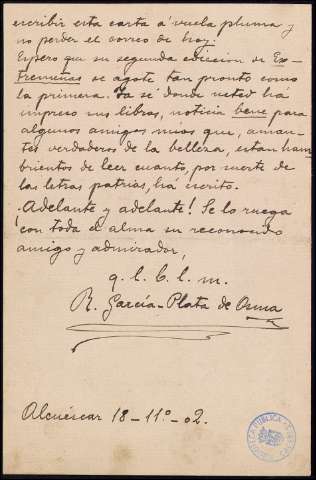 escribir esta carta á vuela pluma y
no perder el correo de hoy.
Espero que su segunda edición de Ex-
tremeñas se agote tan pronto como
la primera. Ya sé donde usted há
impreso sus libros, noticia bene para
algunos amigos mios que, aman-
tes verdaderos de la belleza, están ham-
brientos de leer cuanto, por suerte de
las letras patrias, há escrito.
¡Adelante y adelante! Se lo ruega
con toda el alma su reconocido
amigo y admirador,
q. l. b. l. m.
R. García-Plata de Osma
Alcuéscar 18-11º-02.